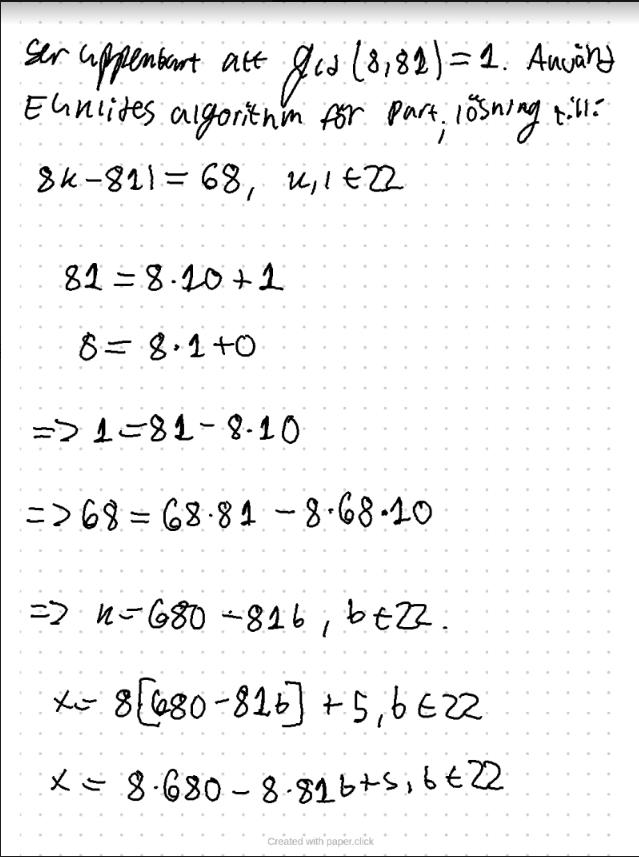 Ser uppenbart att gcd(8,81)=1. Använd
Euklides algorithm för part. lösning till:
8k-81l = 68, k,l ∈ ℤ
81 = 8·10+1
8 = 8·1+0
=> 1=81-8·10
=> 68 = 68·81 - 8·68·10
=> k=680-81b, b∈ℤ.
x= 8[680-81b] + 5, b∈ℤ
x = 8·680 - 8·81b+5, b∈ℤ
Created with paper.click